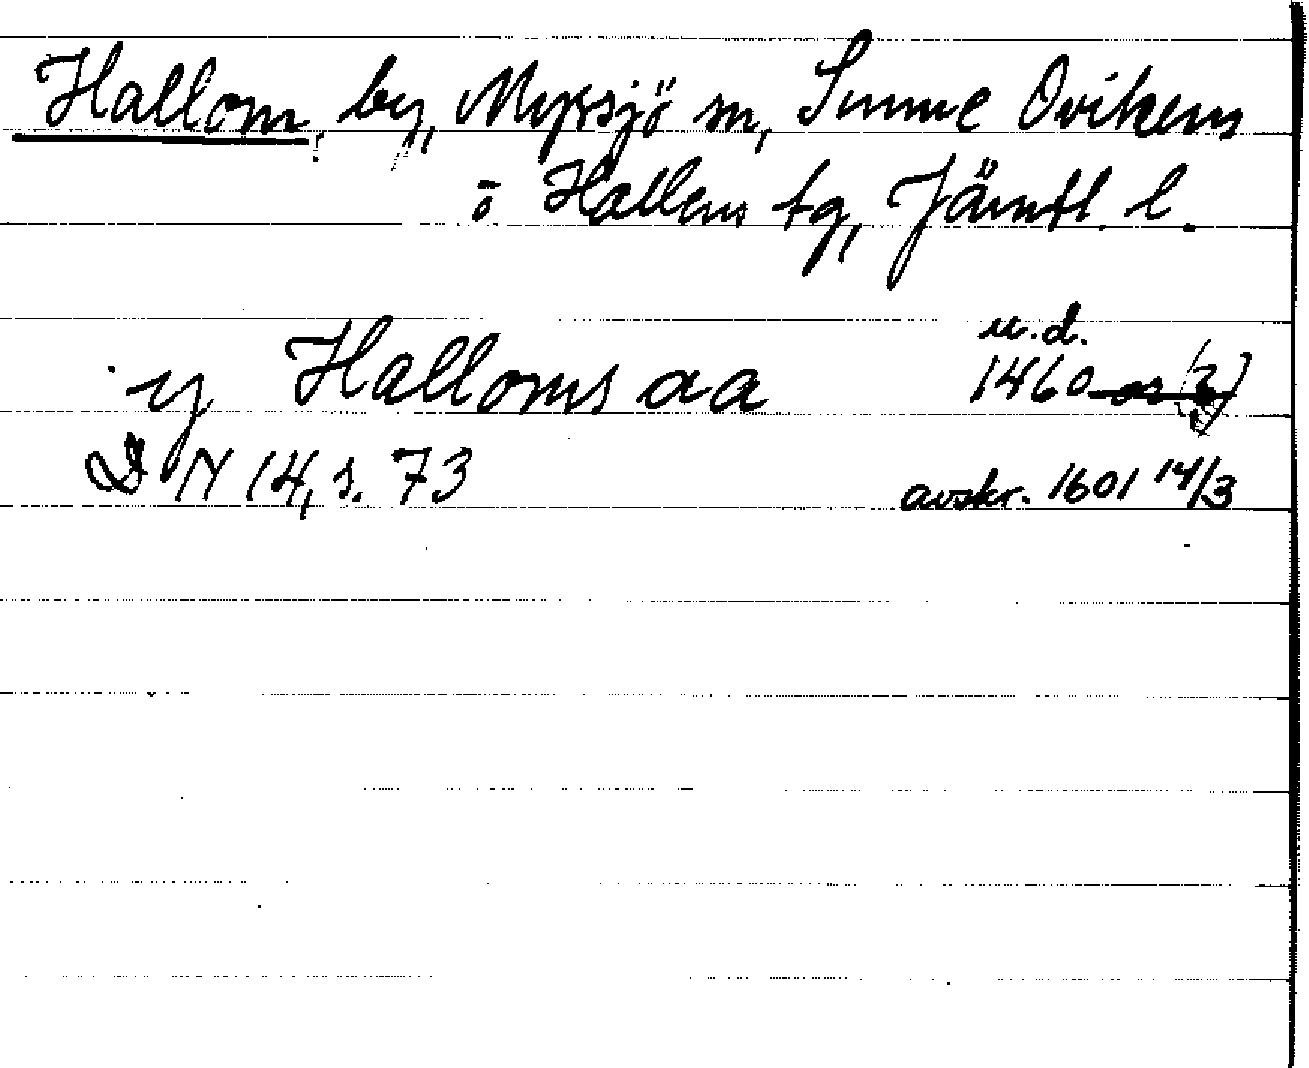 Hallom, by, Myssjö sn, Sunne Ovikens
o Hallens tg, Jämtl. l.
y Halloms aa
u.d.
1460
DN 14, s. 73
avskr. 1601 14/3